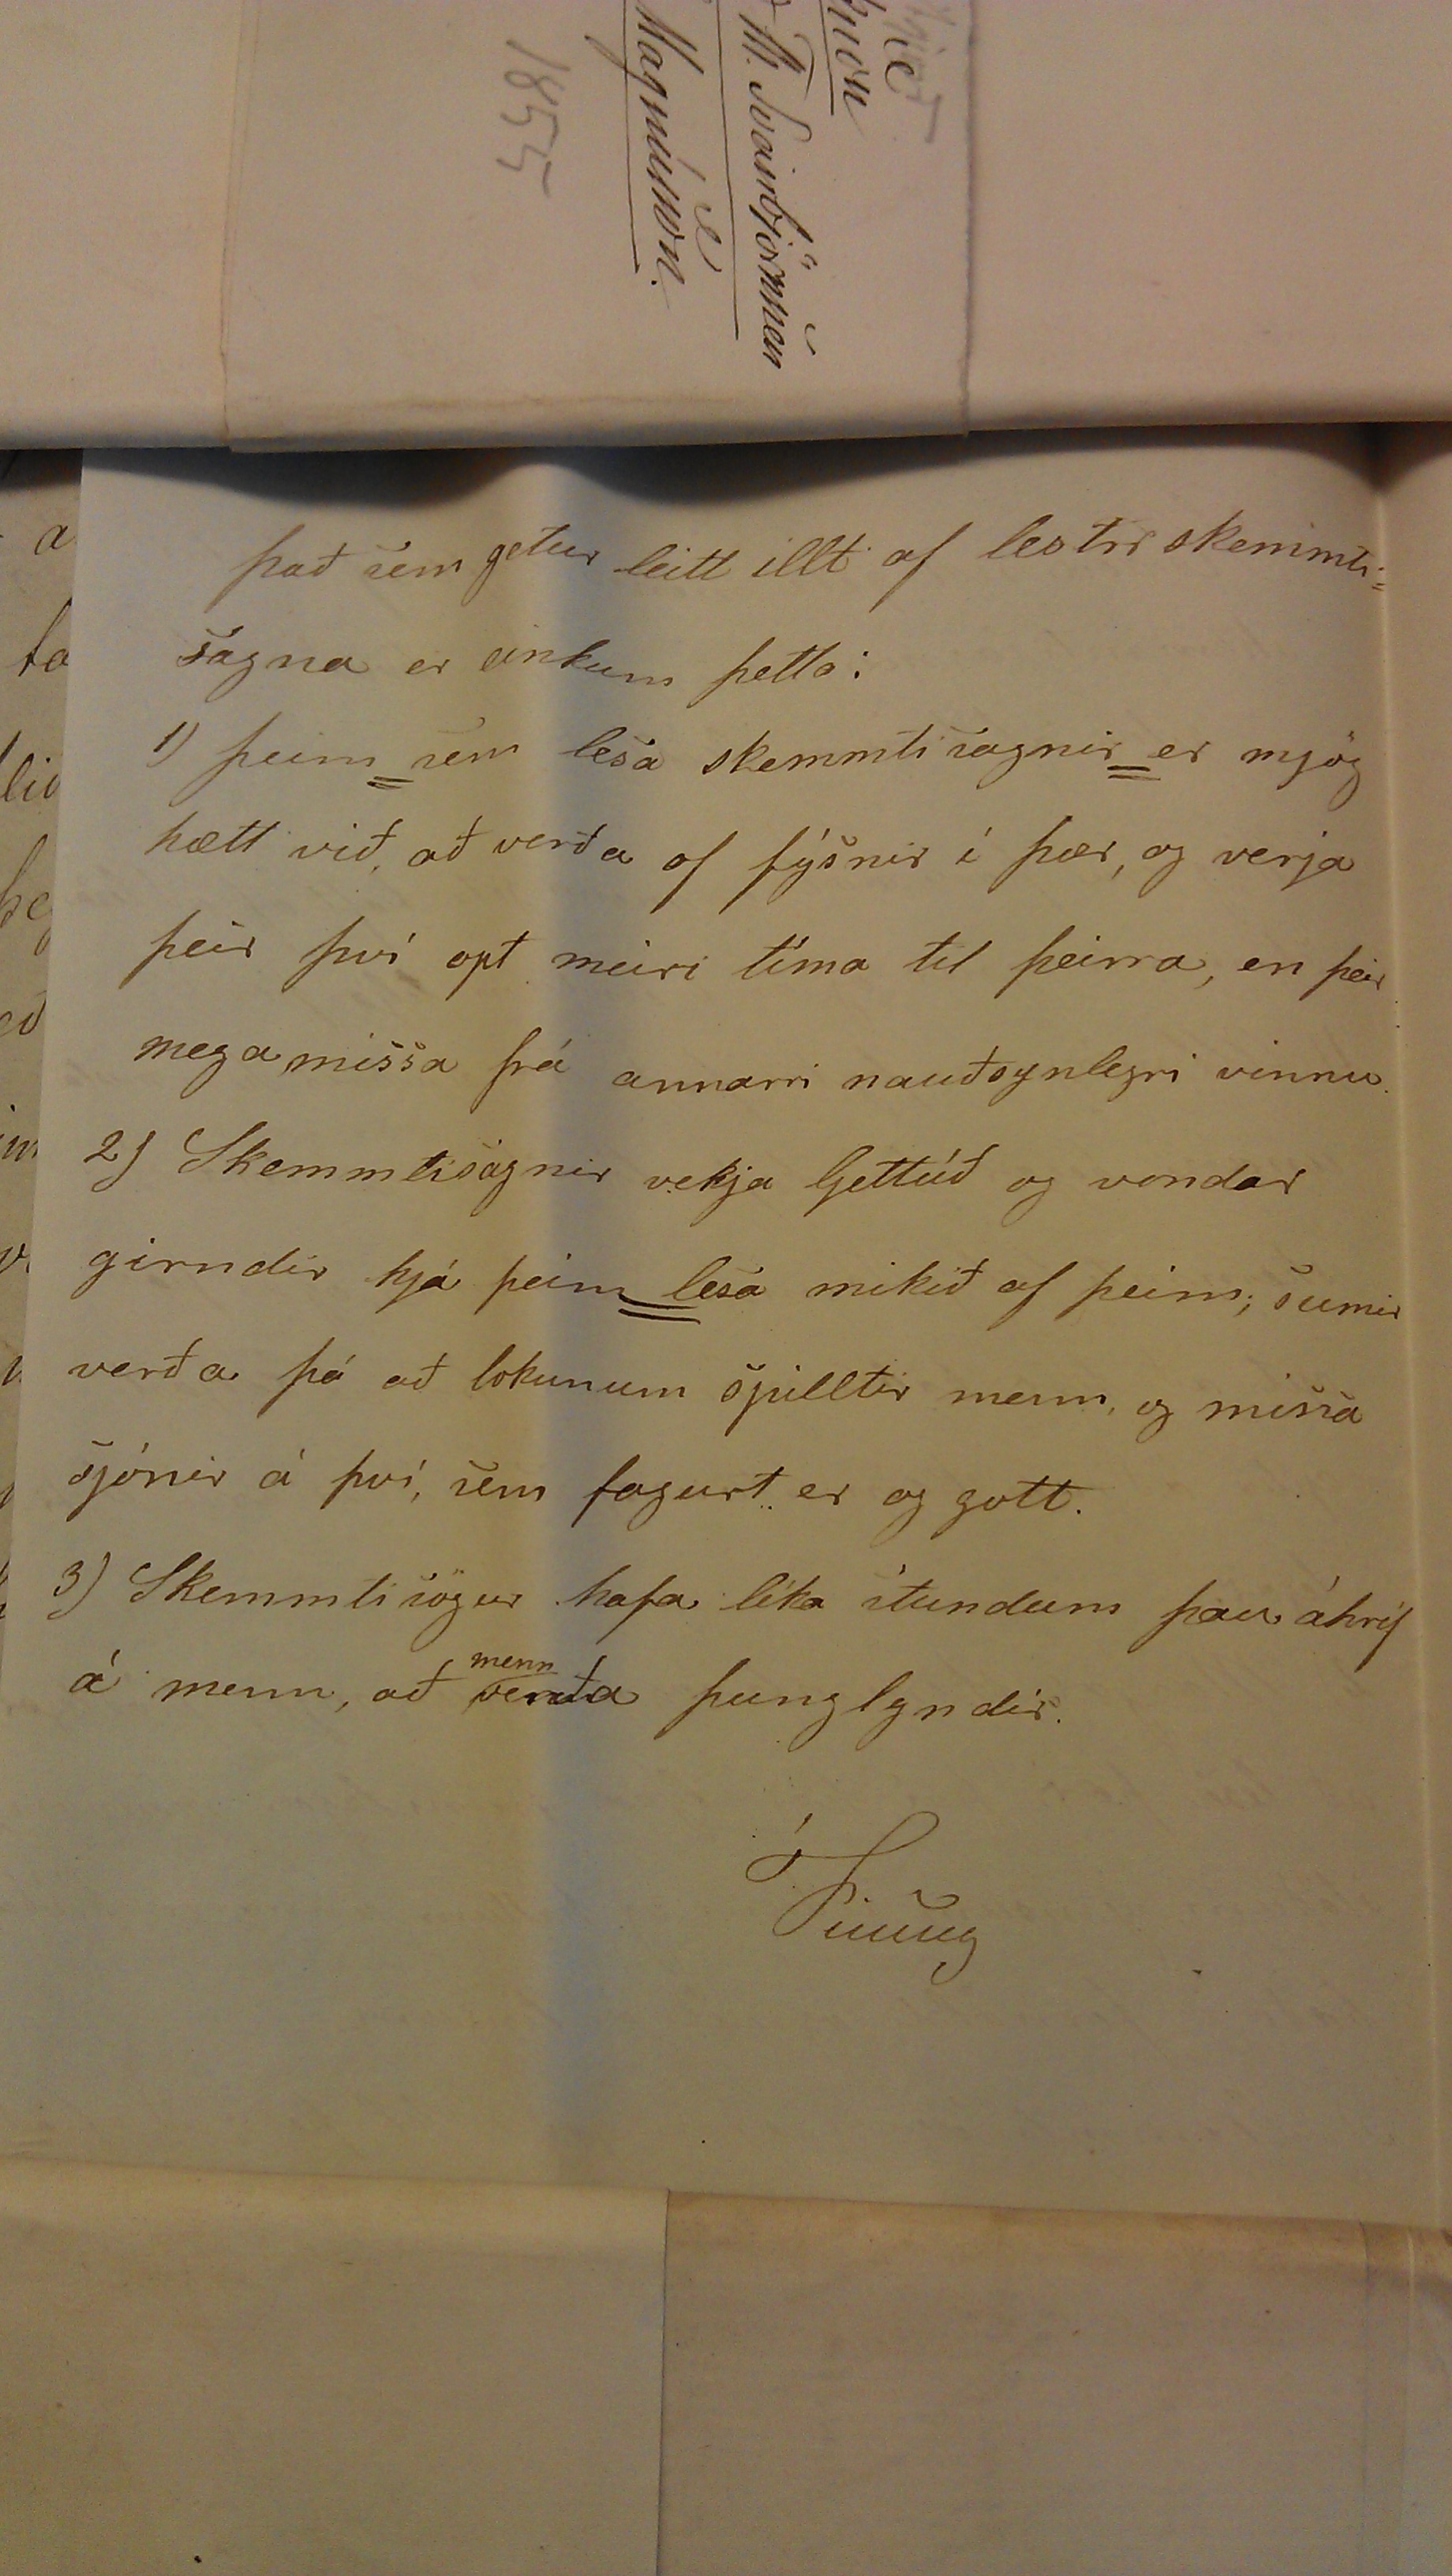 M. Svainbjörnsen
Magnússon.
1855
það sem getur leitt illt af lestri skemmti=
sagna er einkum þetta:
1) þeim sem lesa skemmtisagnir er mjög
hætt við, að verða of fýsnir í þær, og verja
þeir því opt meiri tíma til þeirra, en þeir
mega missa frá annarri nauðsynlegri vinnu.
2) Skemmtisagnir vekja ljettúð og vondar
girndir hjá þeim lesa mikið af þeim; sumir
verða þá að lokunum spilltir menn, og missa
sjónir á því, sem fagurt er og gott.
3) Skemmtisögur hafa líka stundum þau áhrif
á menn, að menn verða þunglyndir.